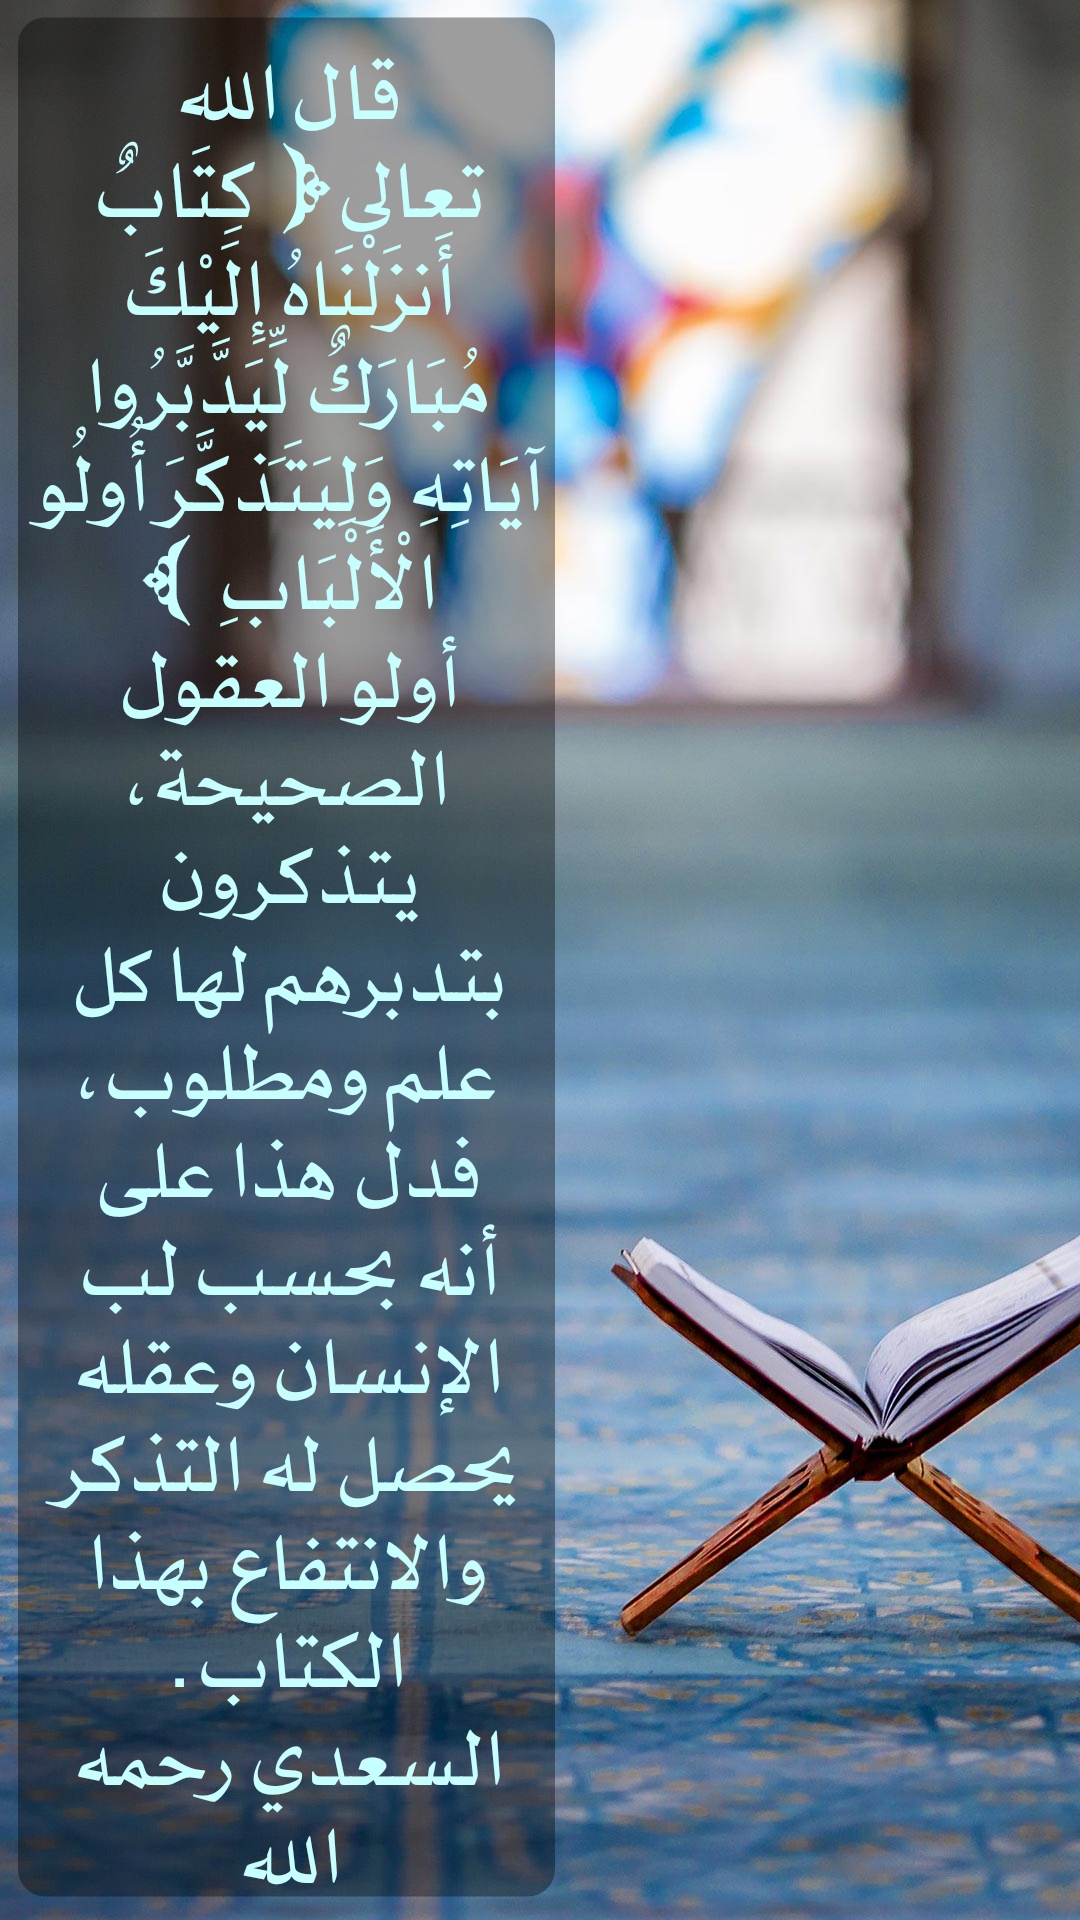 قال الله
تعالى ﴿ كِتَابٌ
أَنزَلْنَاهُ إِلَيْكَ
مُبَارَكٌ لِّيَدَّبَّرُوا
آيَاتِهِ وَلِيَتَذَكَّرَ أُولُو
الْأَلْبَابِ ﴾
أولو العقول
الصحيحة،
يتذكرون
بتدبرهم لها كل
علم ومطلوب،
فدل هذا على
أنه بحسب لب
الإنسان وعقله
يحصل له التذكر
والانتفاع بهذا
الكتاب.
السعدي رحمه
الله